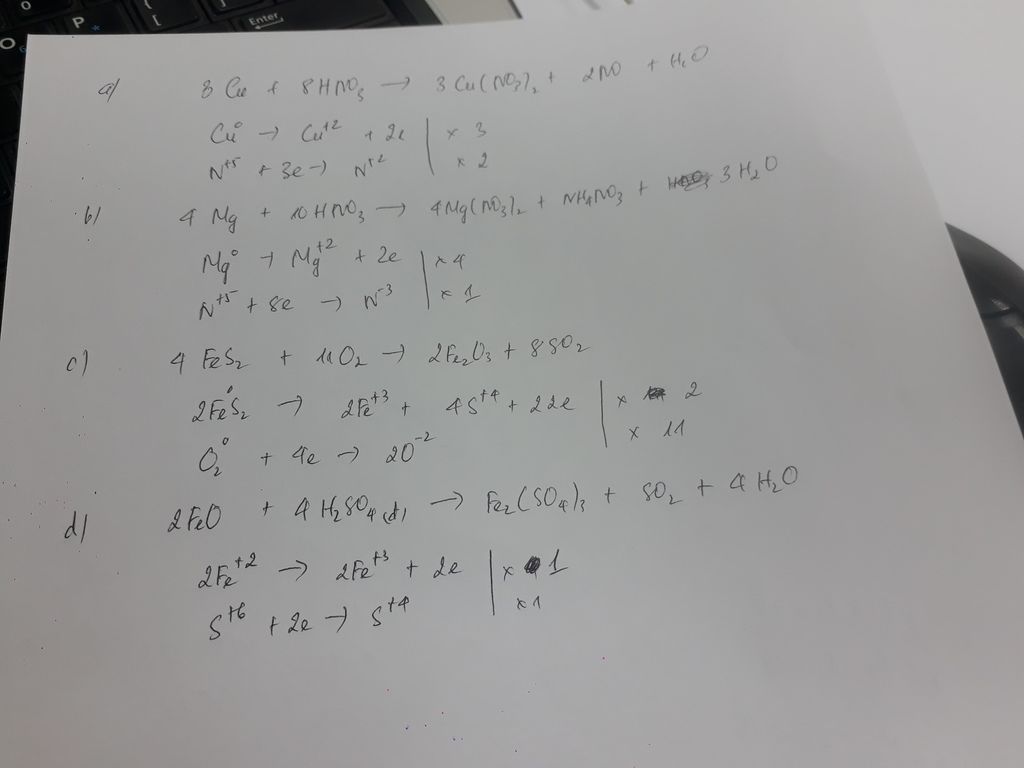 O P [ { Enter
a) 3 Cu + 8HNO3 → 3 Cu(NO3)2 + 2NO + H2O
Cu⁰ → Cu⁺² + 2e | x 3
N⁺⁵ + 3e → N⁺² | x 2
b) 4 Mg + 10 HNO3 → 4Mg(NO3)2 + NH4NO3 + 3 H2O
Mg⁰ → Mg⁺² + 2e | x 4
N⁺⁵ + 8e → N⁻³ | x 1
c) 4 FeS2 + 11O2 → 2Fe2O3 + 8SO2
2FeS2⁰ → 2Fe⁺³ + 4S⁺⁴ + 22e | x 2
O2⁰ + 4e → 2O⁻² | x 11
d) 2FeO + 4 H2SO4(đ) → Fe2(SO4)3 + SO2 + 4 H2O
2Fe⁺² → 2Fe⁺³ + 2e | x 1
S⁺⁶ + 2e → S⁺⁴ | x 1